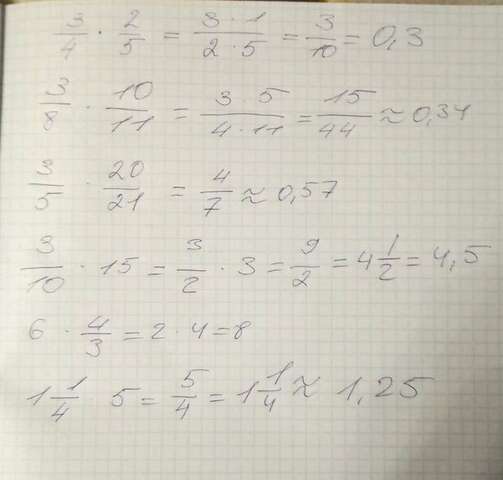 3/4 · 2/5 = 3·1/2·5 = 3/10 = 0,3
3/8 · 10/11 = 3·5/4·11 = 15/44 ≈ 0,34
3/5 · 20/21 = 4/7 ≈ 0,57
3/10 · 15 = 3/2 · 3 = 9/2 = 4 1/2 = 4,5
6 · 4/3 = 2 · 4 = 8
1 1/4 5 = 5/4 = 1 1/4 ≈ 1,25